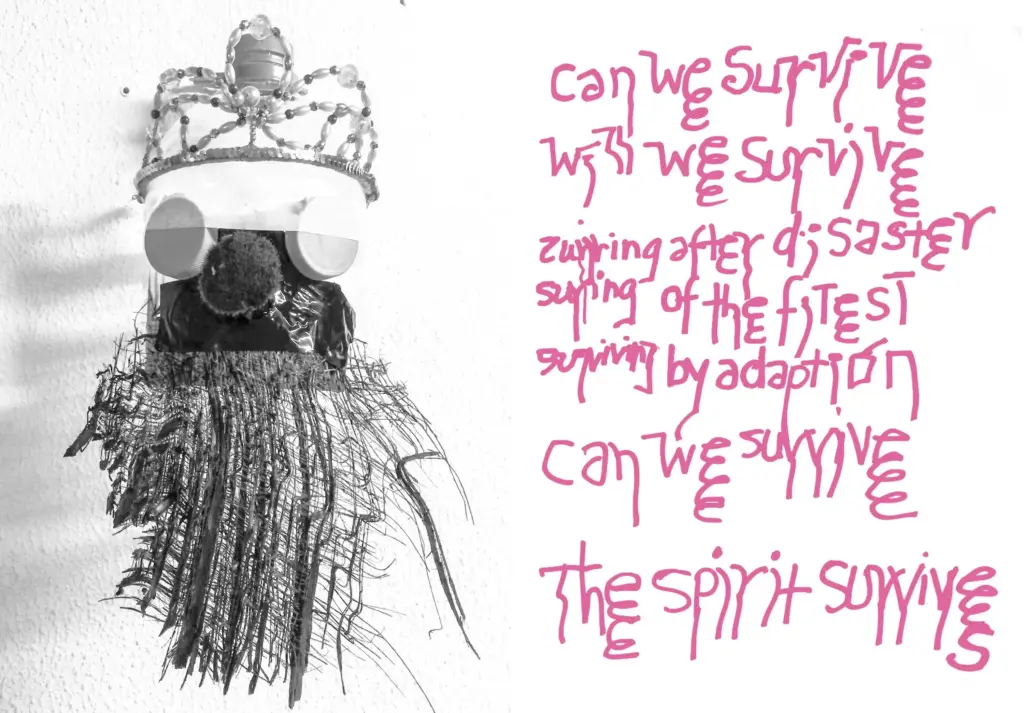 can we survive
will we survive
after disaster
of the fitest
surviving by adaption
can we survive
The spirit survives